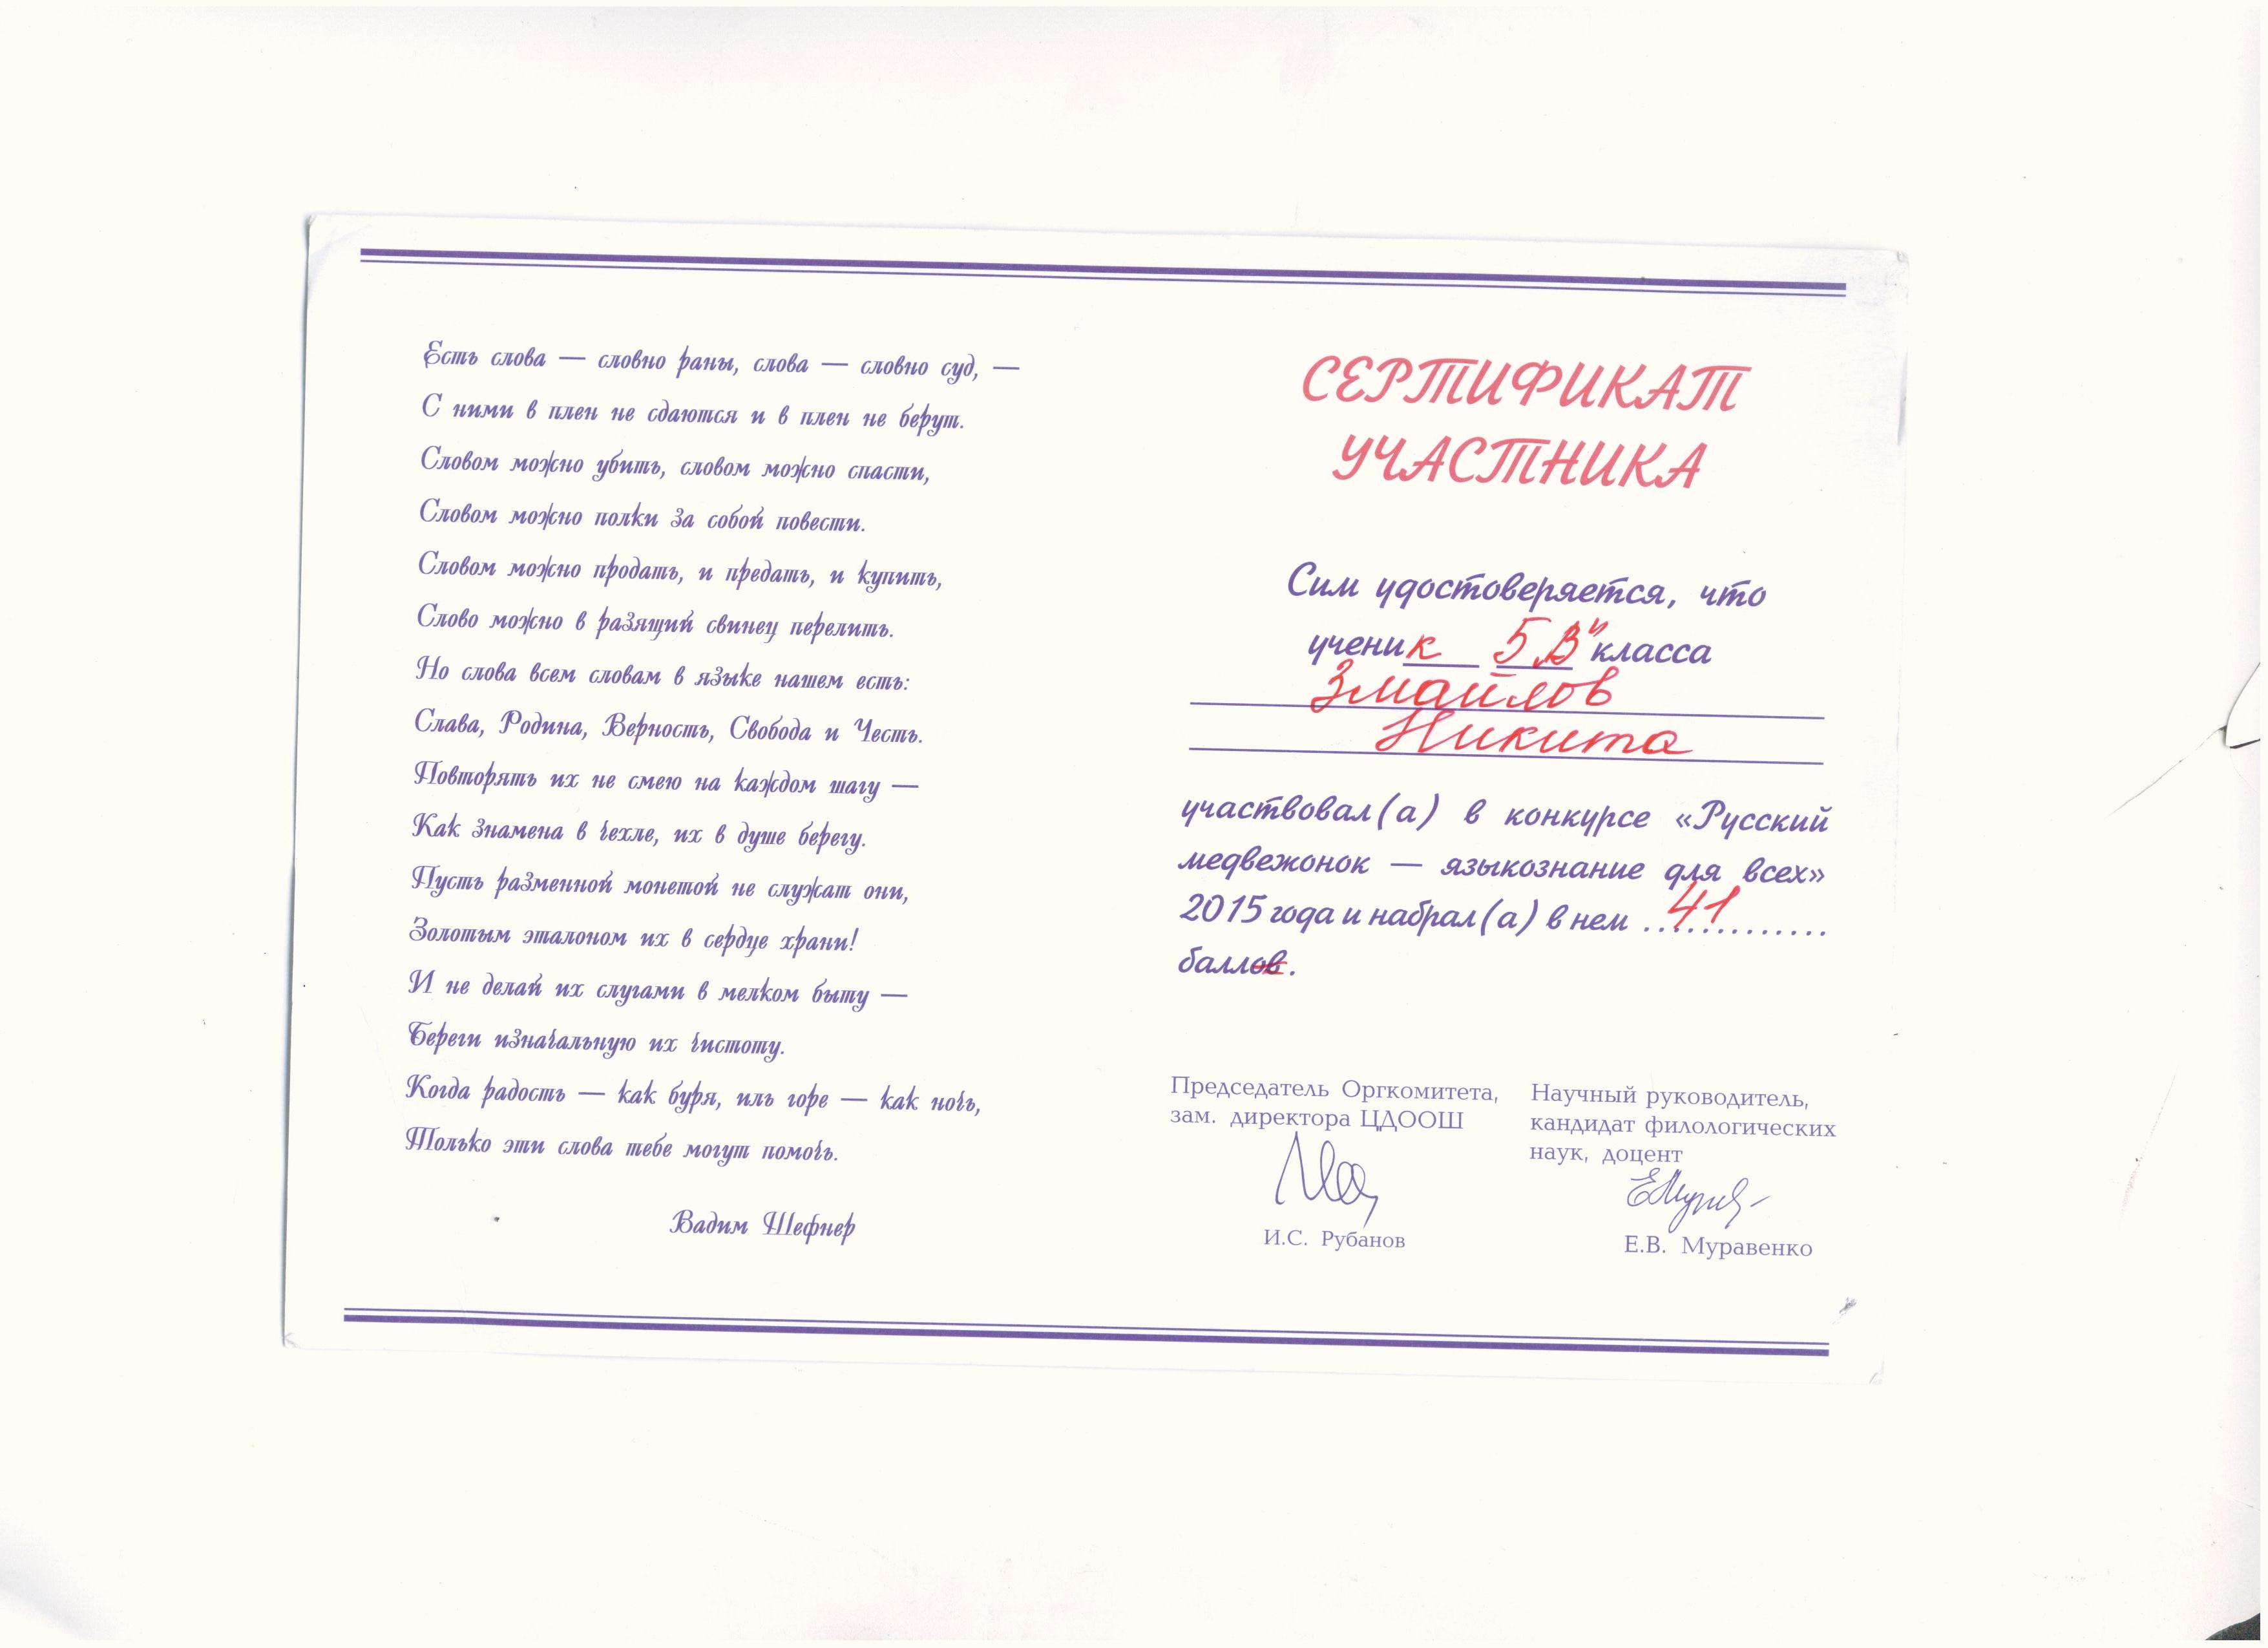 Есть слова — словно раны, слова — словно суд, —
С ними в плен не сдаются и в плен не берут.
Словом можно убить, словом можно спасти,
Словом можно полки за собой повести.
Словом можно продать, и предать, и купить,
Слово можно в разящий свинец перелить.
Но слова всем словам в языке нашем есть:
Слава, Родина, Верность, Свобода и Честь.
Повторять их не смею на каждом шагу —
Как знамена в чехле, их в душе берегу.
Пусть разменной монетой не служат они,
Золотым эталоном их в сердце храни!
И не делай их слугами в мелком быту —
Береги изначальную их чистоту.
Когда радость — как буря, иль горе — как ночь,
Только эти слова тебе могут помочь.
Вадим Шефнер
СЕРТИФИКАТ
УЧАСТНИКА
Сим удостоверяется, что
ученик 5 „В" класса
Змайлов
Никита
участвовал(а) в конкурсе «Русский
медвежонок — языкознание для всех»
2015 года и набрал(а) в нем ....41.........
баллов.
Председатель Оргкомитета,
зам. директора ЦДООШ
И.С. Рубанов
Научный руководитель,
кандидат филологических
наук, доцент
Е.В. Муравенко